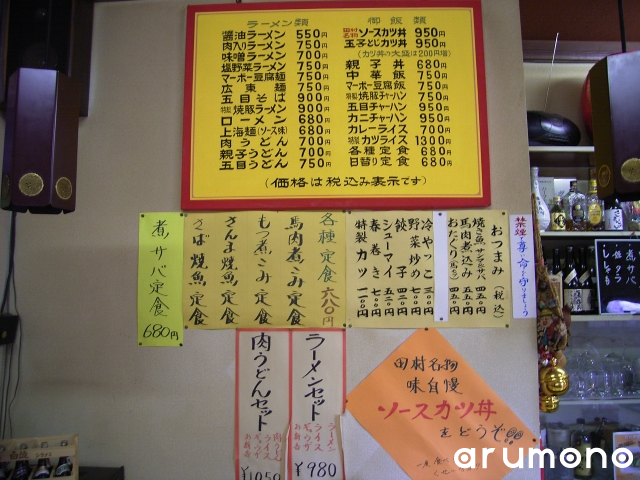 ラーメン類
醤油ラーメン 550円
肉入りラーメン 750円
味噌ラーメン 700円
塩野菜ラーメン 750円
マーボー豆腐麺 750円
広東麺 750円
五目そば 900円
特製 焼豚ラーメン 900円
ローメン 680円
上海麺(ソース味) 680円
肉うどん 700円
親子うどん 700円
五目うどん 750円
御飯類
田村名物 ソースカツ丼 950円
玉子とじカツ丼 950円
カツ丼の大盛は200円増
親子丼 680円
中華飯 750円
マーボー豆腐飯 750円
特製 焼豚チャーハン 950円
五目チャーハン 950円
カニチャーハン 950円
カレーライス 700円
特製 カツライス 1300円
各種定食 680円
日替り定食 680円
(価格は税込み表示です)
煮サバ定食
680円
各種定食 六八〇円
馬肉煮こみ定食
もつ煮こみ定食
さんま焼魚定食
さば焼魚定食
おつまみ(税込)
焼き魚
馬肉煮込み 四五〇
おたぐり(馬もつ)
冷やっこ 三〇〇
野菜炒め 五〇〇
餃子
シューマイ
春巻き
特製カツ
ラーメンセット
ラーメン
ライス
ギョウザ
お新香
¥980
肉うどんセット
肉うどん
ライス
ギョウザ
お新香
¥1050
田村名物
味自慢
ソースカツ丼
をどうぞ!!
煮サバ
arumono